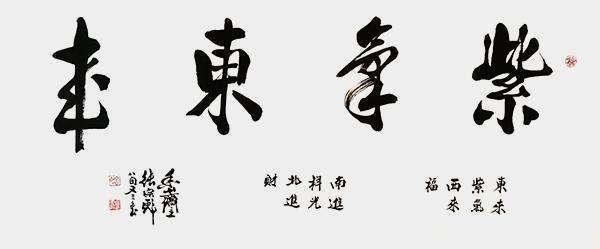 紫氣東来
東来
紫氣
西来
福
南進
祥光
北進
財